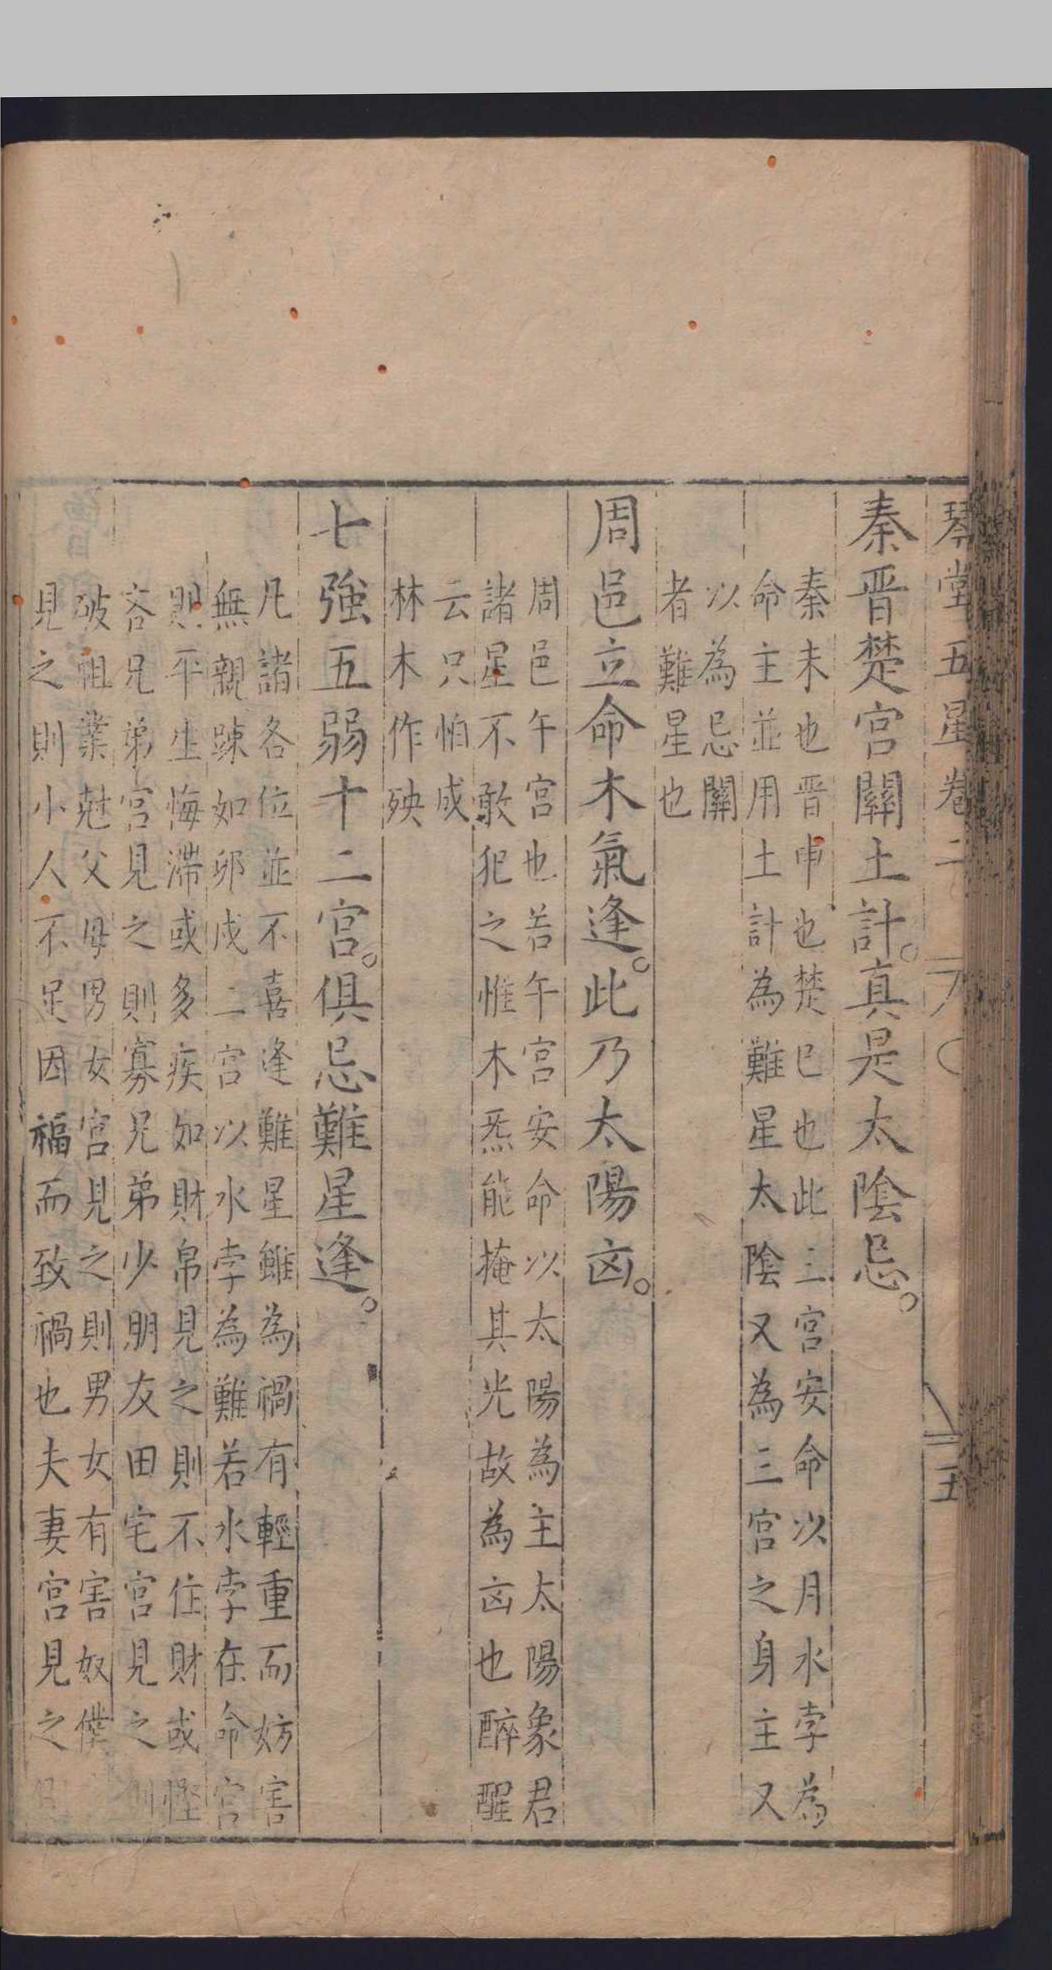 琴堂五星卷二
五
秦晋楚宫關土計。真是太陰忌。
秦未也晋申也楚巳也此三宫安命以月水孛為
命主並用土計為難星太陰又為三宫之身主又
以為忌關
者難星也
周邑立命木氣逢。此乃太陽㐫。
周邑午宫也若午宫安命以太陽為主太陽象君
諸星不敢犯之惟木炁能掩其光故為㐫也醉醒
云只怕成
林木作殃
七強五弱十二宫。俱忌難星逢。
凡諸各位並不喜逢難星雖為禍有輕重而妨害
無親踈如卯戌二宫以水孛為難若水孛在命宫
則平生悔滯或多疾如財帛見之則不住財或慳
吝兄弟宫見之則寡兄弟少朋友田宅宫見之則
破祖業尅父母男女宫見之則男女有害奴僕
見之則小人不足因福而致禍也夫妻宫見之則